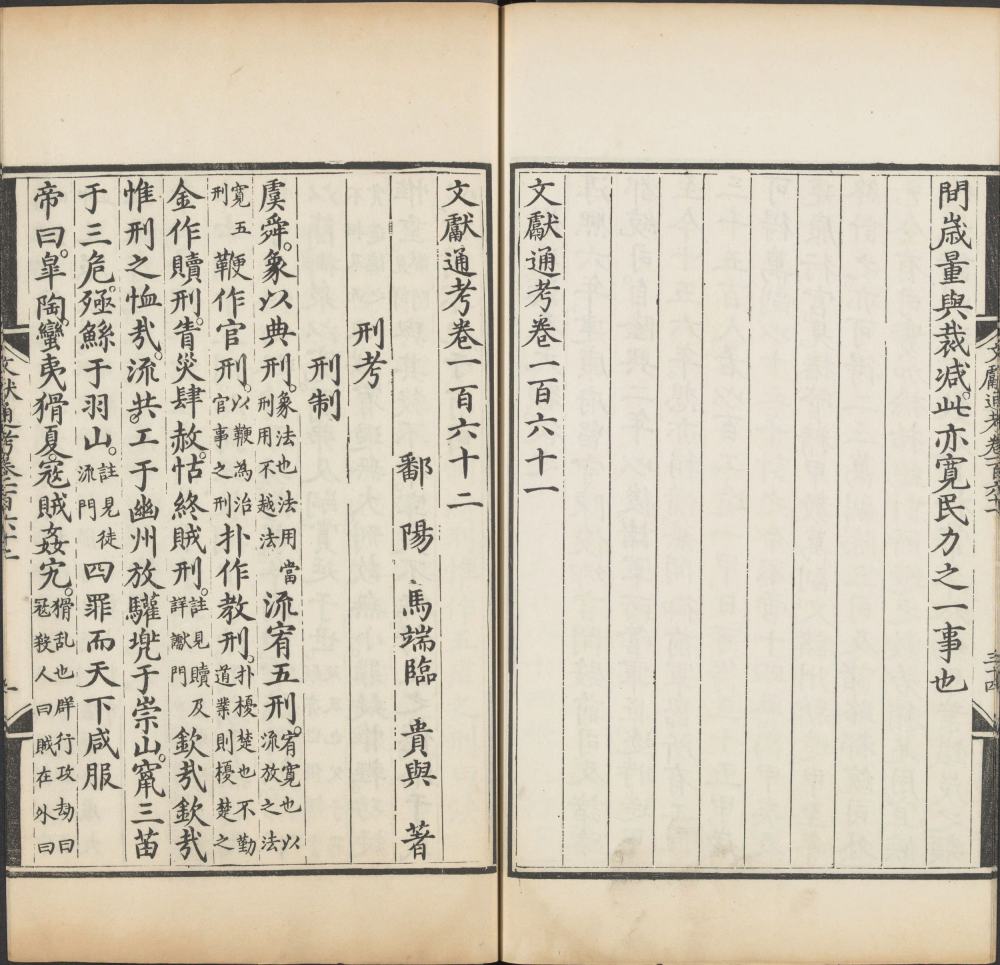 間歳量與裁减此亦寛民力之一事也
文獻通考卷一百六十一
文獻通考卷一百六十二
鄱陽馬端臨貴與著
刑考
刑制
虞舜象以典刑象法也法用當刑用不越法流宥五刑宥寛也以流放之法
寛五刑鞭作官刑以鞭為治官事之刑扑作教刑扑榎楚也不勤道業則榎楚之
金作贖刑眚災肆赦怙終賊刑註見贖及詳讞門欽㢤欽㢤
惟刑之恤㢤流共工于幽州放驩兠于崇山竄三苗
于三危殛鯀于羽山註見徒流門四罪而天下咸服
帝曰皐陶蠻夷猾夏冦賊姦宄猾乱也羣行攻劫曰冦殺人曰賊在外曰
文獻通考卷一百六十一
三十四
文獻通考卷一百六十二